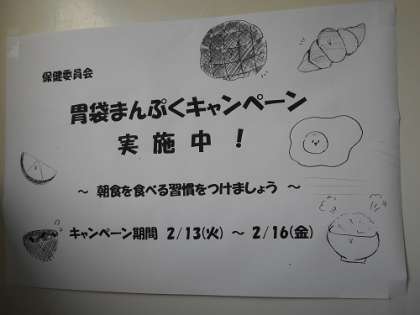 保健委員会
胃袋まんぷくキャンペーン
実施中！
～ 朝食を食べる習慣をつけましょう ～
キャンペーン期間 2/13(火) ～ 2/16(金)